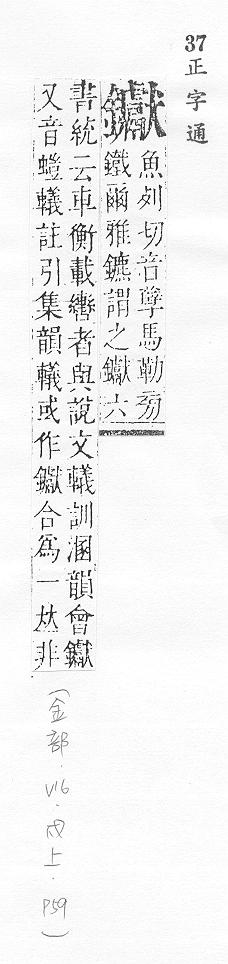 37正字通
钀
魚列切音孽馬勒旁
鐵爾雅鑣謂之钀六
書統云車衡載轡者與說文轙訓溷韻會钀
又音螘轙註引集韻轙或作钀合為一𠀤非
(金部.V16.戌上.P59)